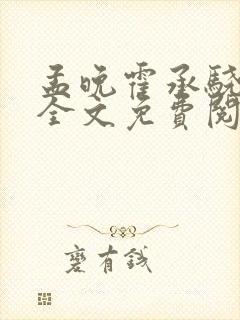 孟晚霍承驍
全文免費閱
褎有錢